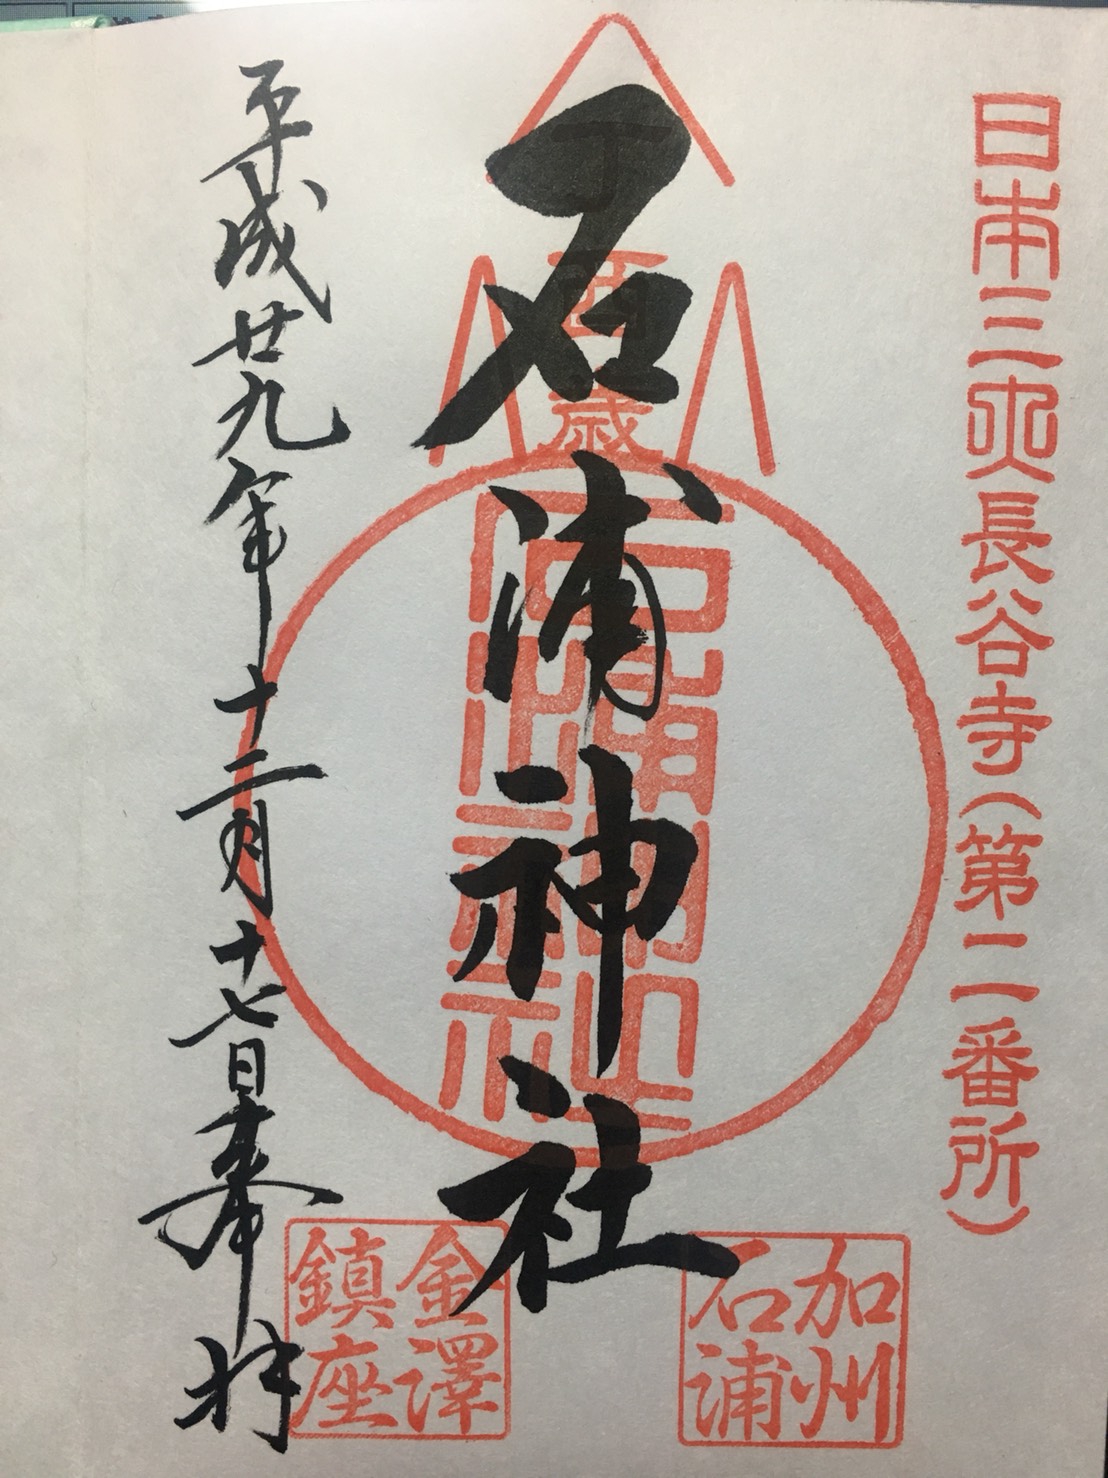 日本三大長谷寺(第二番所)
加州
石浦
丁
酉
歳
石浦神社
石浦神社
金澤
鎮座
平成廿九年十二月十七日奉拝